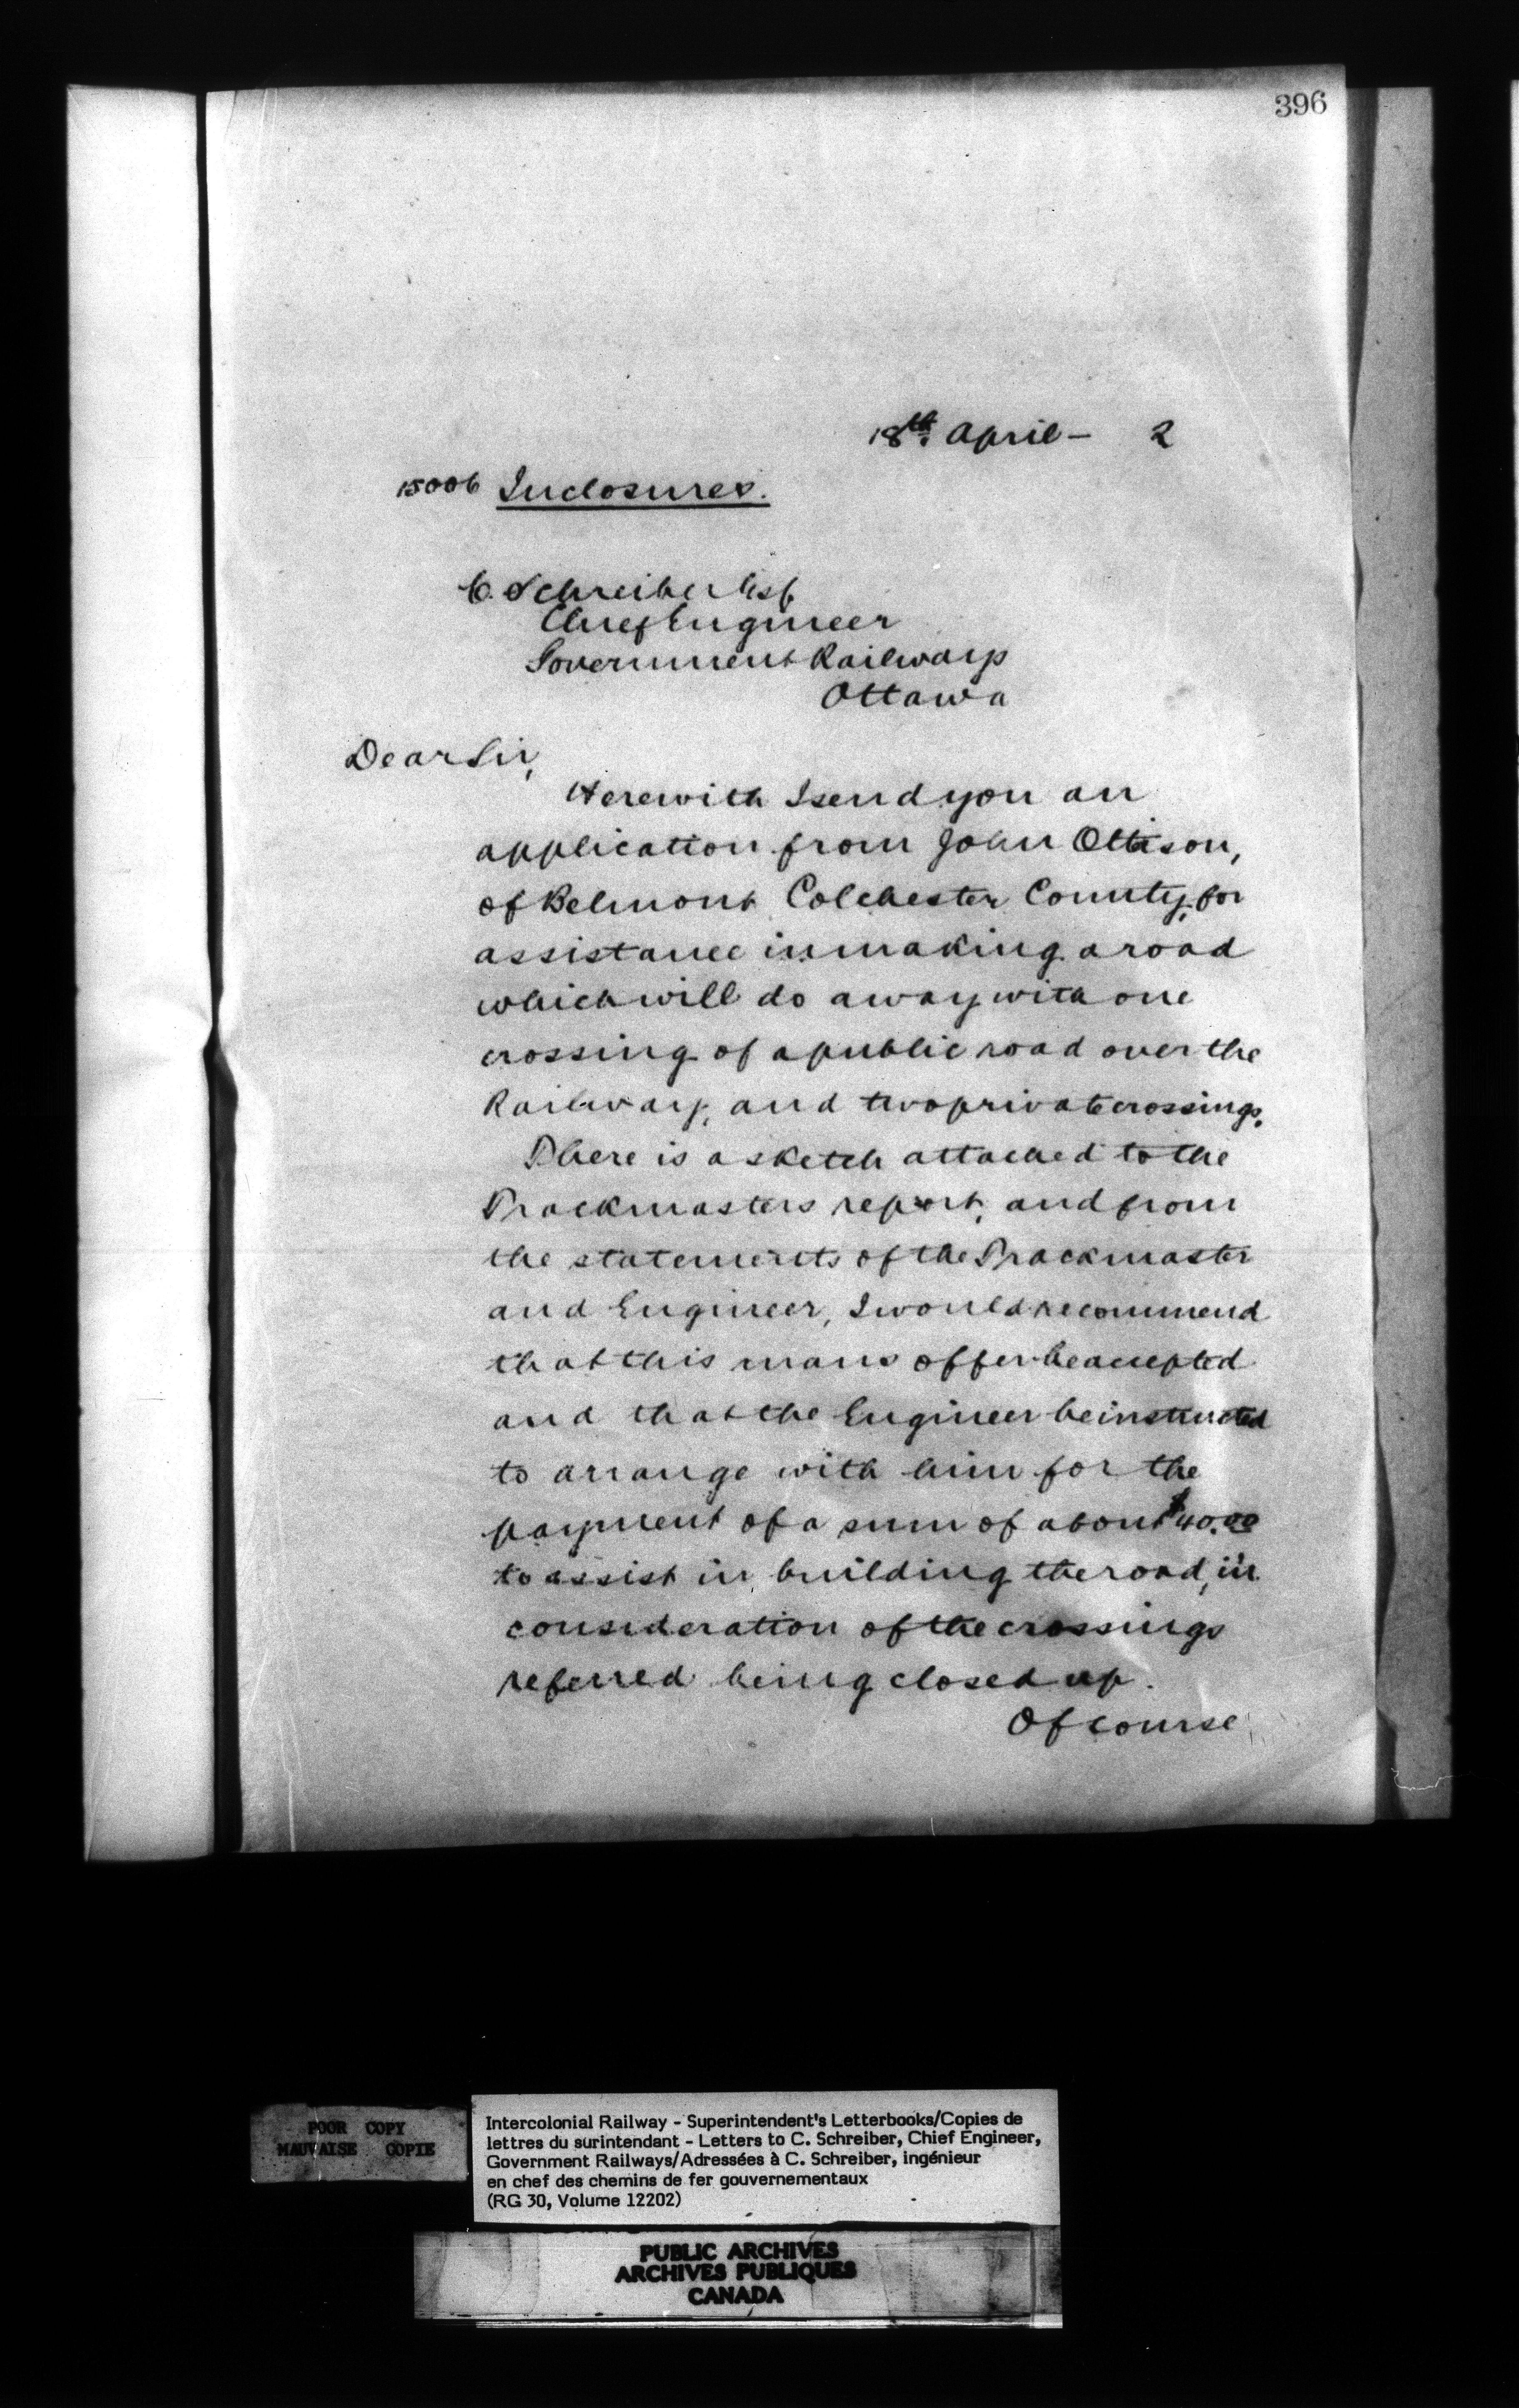 396
18th. April - 2
15006 Inclosures.
C. Schreiber Esq
Chief Engineer
Government Railways
Ottawa
Dear Sir,
Herewith I send you an
application from John
of Belmont Colchester County, for
assistance in making a road
which will do away with one
crossing of a public road over the
Railway, and two private crossings.
There is a sketch attached to the
Trackmasters report, and from
the statements of the Trackmaster
and Engineer, I would recommend
that this mans offer be accepted
and that the Engineer be instructed
to arrange with him for the
payment of a sum of about $40.00
to assist in building the road, in
consideration of the crossings
referred being closed up.
Of course
POOR COPY
MAUVAISE COPIE
Intercolonial Railway - Superintendent's Letterbooks/Copies de
lettres du surintendant - Letters to C. Schreiber, Chief Engineer,
Government Railways/Adressées à C. Schreiber, ingénieur
en chef des chemins de fer gouvernementaux
(RG 30, Volume 12202)
PUBLIC ARCHIVES
ARCHIVES PUBLIQUES
CANADA